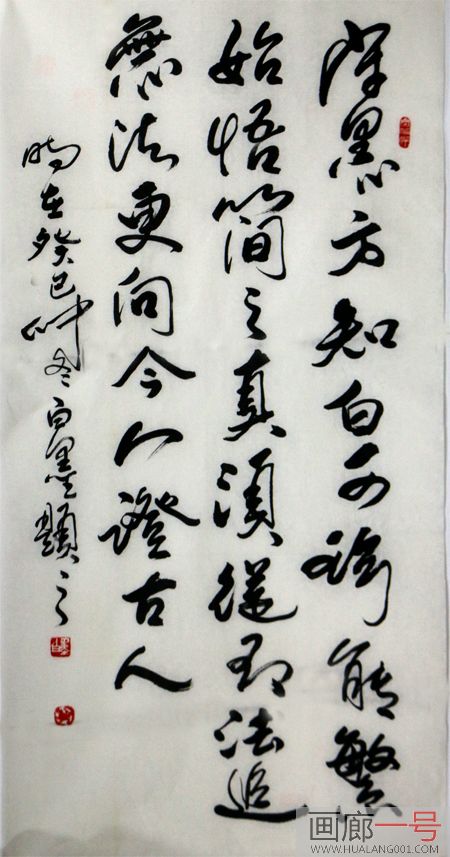 黑方知白可珍能繁
始悟簡之真須從法追
無法更向今人證古人
時在癸巳仲冬白墨題之
画廊一号
WWW.HUALANG001.COM